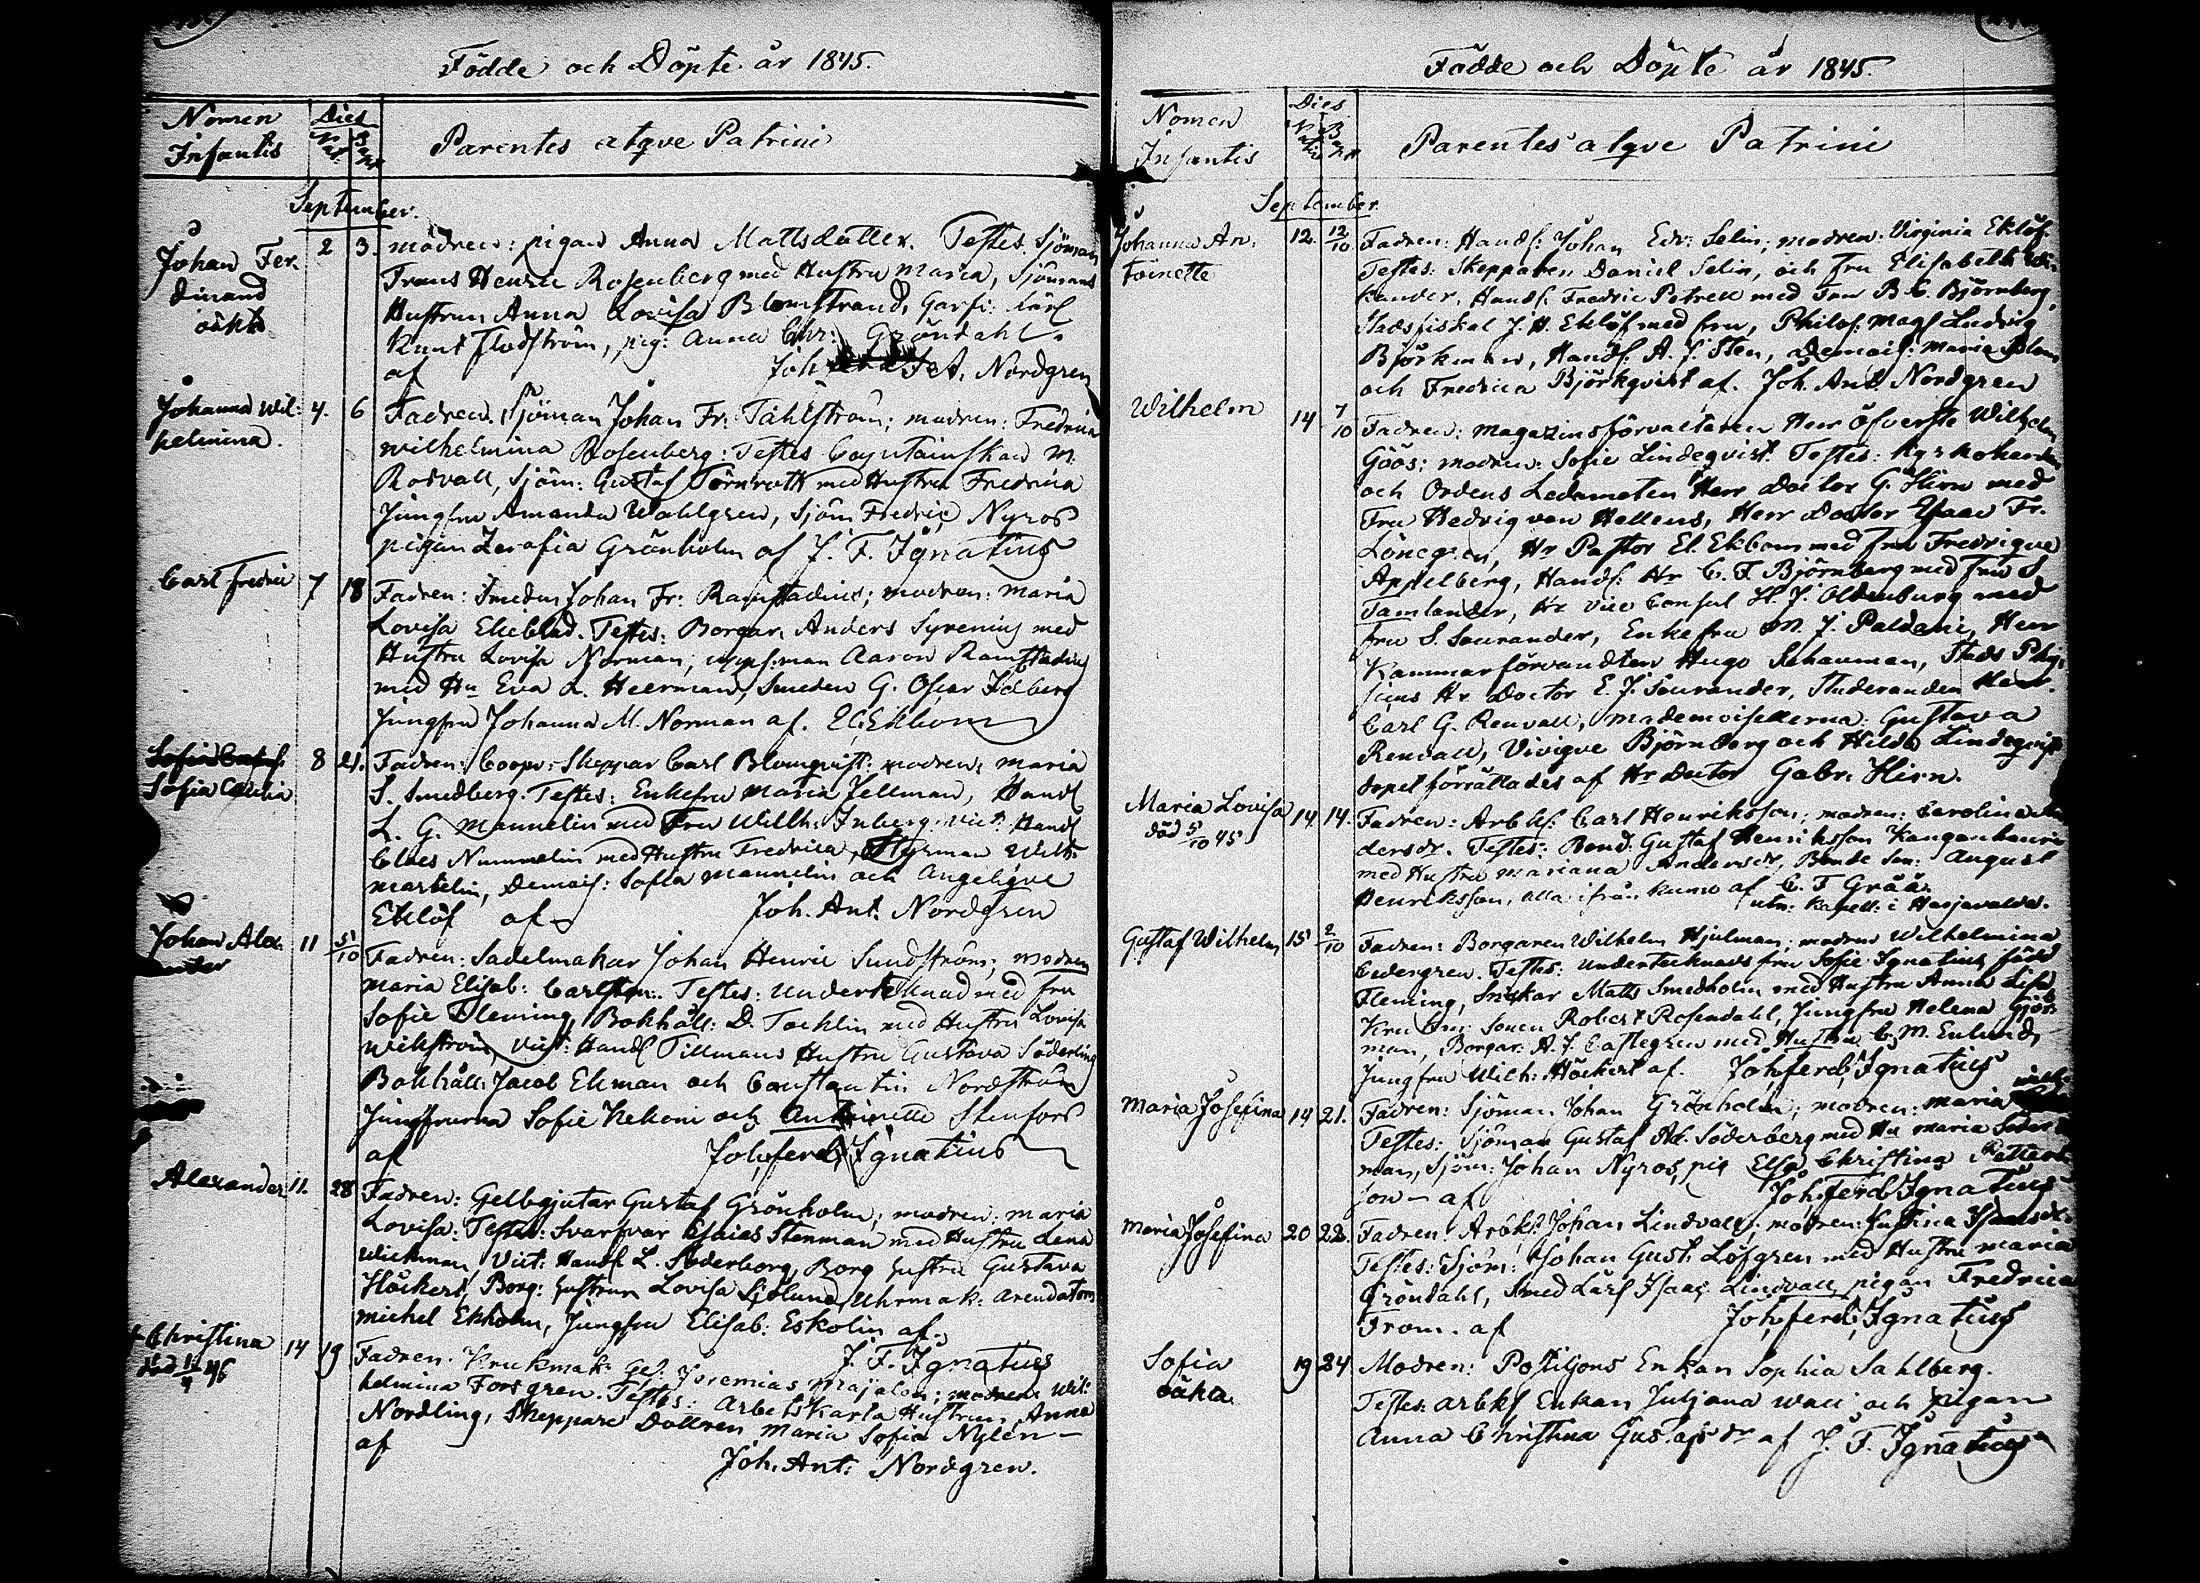 Födde och Döpte år 1845.
Nomen Infantis
Dies
Nat.
Bapt.
Parentes atqve Patrini
September.
Johan Fer
dinand
oäkta
2 3.
modren: pigan Anna Mattsdotter. Testes Sjöman
Frans Henric Rosenberg med Hustru Maria, Sjömans
Hustrun Anna Lovisa Blomstrand, Garf: Lärl
Knut Flodström, pig: Anna Chr: Gröndahl
af Joh A. Nordgren
Johanna Wil-
helmina.
4. 6
Fadren. Sjöman Johan Fr: Tahlström; modren: Fredrica
Wilhelmina Rosenberg: Testes Capitainskan M.
Rodvall, Sjöm: Gustaf Törnroth med Hustru Fredrica
Jungfru Amanda Wahlgren, Sjöm Fredric Nyros
pigan Serafia Grönholm af J. F. Ignatius
Carl Fredric
7 18
Fadren: Smeden Johan Fr: Ramstadius; modren: Maria
Lovisa Ekeblad. Testes: Borgar: Anders Syrenius med
Hustru Lovisa Norman; upps:man Aaron Ramstadius
med Hu Eva L. Heerman, Smeden G. Oscar Idberg
Jungfru Johanna M. Norman af. El Ekbom
Sofia Cecilia
8 21.
Fadren: Coopv: Skeppar Carl Blomqvist: modren: Maria
S. Smedberg. Testes: Enkefru Maria Jellman, Handl
L. G. Mannelin med Fru Wilh: Inberg: Vict: Handl
Claes Nummelin med Hustru Fredrica, Styrman Wilh:
Martelin, Demois: Sofia Mannelin och Angeliqve
Eklöf af Joh. Ant. Nordgren
Johan Alex-
ander
11 5/10
Fadren: Sadelmakar Johan Henric Sundström; modren
Maria Elisab: Carlsson. Testes: Undertecknad med fru
Sofie Fleming, Bokhåll: D. Tocklin med Hustru Lovisa
Wikström, Vict: Handl Tillmans Hustru Gustava Söderling
Bokhåll: Jacob Ekman och Constantin Nordström
Jungfruerna Sofie Kekoni och Antoinette Stenfors
af Joh, ferd, Ignatius
Alexander
11. 28
Fadren: Gelbgjutar Gustaf Grönholm; modren: Maria
Lovisa: Testes: Svarfvar Esaias Stenman med Hustru Lena
Wickman, Vict: Handl L. Söderborg, Borg Hustru Gustava
Höckert, Borg: Hustrun Lovisa Sjölund, Uhrmak: Arendatorn
Michel Ekholm, Jungfru Elisab: Eskolin af.
J. F. Ignatius
Christina
14 19
Fadren: Krukmak: Ges. Jeremias Majalon; modren Wil-
helmina Forsgren. Testes: Arbets Karla Hustrun Anna
Nordling, Skeppare Dottren Maria Sofia Nylen
af Joh. Ant: Nordgren.
Födde och Döpte år 1845.
Nomen Infantis
Dies
Parentes atqve Patrini
September.
Johanna An-
toinette
12. 12/10
Fadren: Handl: Johan Edv: Selin; modren. Virginia Eklöf.
Testes: Skepparen Daniel Selin, och fru Elisabeth Wi-
kander, Handl: Fredric Petrell med Fru B. C. Björnberg,
Stadsfiskal J. H. Eklöf med fru, Philos: Mag: Ludvig
Björkman, Handl: A. J. Sten, Demois: Maria Blom
och Fredrica Björkqvist af. Joh. Ant. Nordgren
Wilhelm
14 7/10
Fadren: Magazinsförvaltaren Herr Öfverste Wilhelm
Göös; modren: Sofie Lindeqvist. Testes: Kyrkoherden
och Ordens Ledamoten Herr Doctor G. Hirn med
Fru Hedvig von Hellens, Herr Doctor Isaac Fr.
Lönegren, Hr Pastor El. Ekbom med fru Fredriqve
Appelberg, Handl: Hr C. F. Björnberg med fru S
Tamlander, Hr Vice Consul H. J. Oldenburg med
fru S. Sourander, Enkefru M. J. Paldani, Herr
Kammarförvandten Hugo Schauman, Stads Phy-
sicus Hr Doctor E. J. Sourander, Studeranden Herr
Carl G. Renvall, Mademoisellerna: Gustava
Renvall, Vivigve Björnberg och Hilda Lindeqvist
dopet förrättades af Hr Doctor Gabr. Hirn.
Maria Lovisa
död 5/10 45
14. 14.
Fadren: Arb ks: Carl Henriksson; modren: Carolina An-
dersdr. Testes: Bond: Gustaf Henriksson Kangenhenri
med Hustru Mariana Andersdr, Bonde Son: August
Henriksson, alla ifrån Kumo af C. T Grää.
utn: Kapell: i Harjavalda.
Gustaf Wilhelm
15 2/10
Fadren: Borgaren Wilhelm Hjulman; modren Wilhelmina
Cedergren. Testes: Undertecknads fru Sofie Ignatius född
Fleming, Snickar Matts Smedholm med Hustru Anna Lisa
Sonen Robert Rosendahl, Jungfru Helena Sjö-
man, Borgar: A. J. Castegren med Hustru C. M. Enlund,
Jungfru Wilh: Höckert af. Joh, ferd, Ignatius
Maria Josefina
14 21.
Fadren: Sjöman Johan Grönholm; modren: Maria
Testes: Sjöman Gustaf Ad. Söderberg med Hu Maria Söder
man, Sjöm: Johan Nyros, pig Elsa Christina Petters
son af Joh, ferd, Ignatius
Maria Josefina
20 22.
Fadren: Arbks: Johan Lindvall; modren: Justina Isaacsdr.
Testes: Sjöm: Johan Gust: Löfgren med Hustru Maria
Gröndahl, Smed Lärl Isaac Lindvall, pigan Fredrica
From. af Joh, ferd, Ignatius
Sofia
oäkta
19 24
Modren: Postiljons Enkan Sophia Sahlberg.
Testes: Arbks Enkan Juljana Wass och Pigan
Anna Christina Gustafsdr af J. F. Ignatius